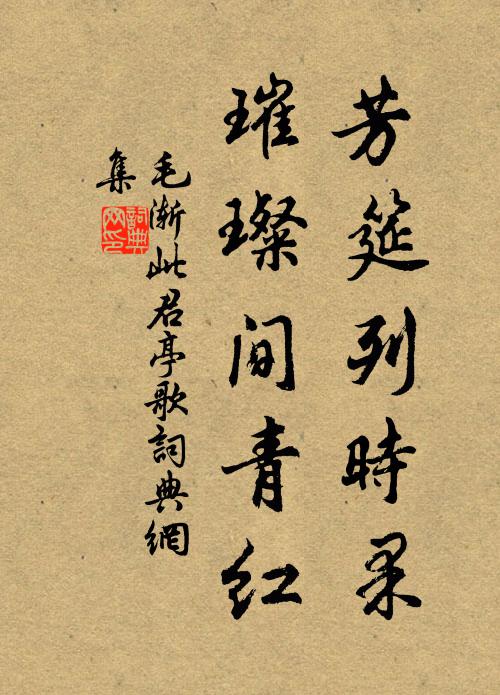 芳筵列時果
璀璨間青紅
毛漸此君亭歌詞典網
集
詞典网印